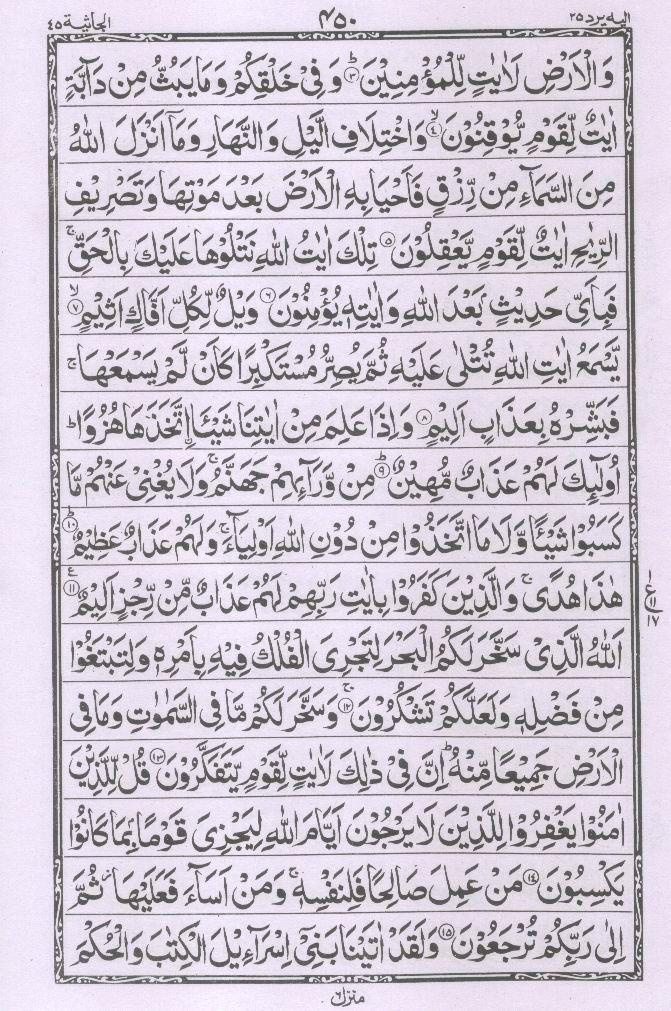 اليه يرد ٢٥ ٤٥٠ الجاثية ٤٥
وَالْاَرْضِ لَاٰيٰتٍ لِّلْمُؤْمِنِيْنَ ؕ۝۳ وَفِيْ خَلْقِكُمْ وَمَا يَبُثُّ مِنْ دَآبَّةٍ
اٰيٰتٌ لِّقَوْمٍ يُّوْقِنُوْنَ ۙ۝۴ وَاخْتِلَافِ الَّيْلِ وَالنَّهَارِ وَمَاۤ اَنْزَلَ اللّٰهُ
مِنَ السَّمَآءِ مِنْ رِّزْقٍ فَاَحْيَا بِهِ الْاَرْضَ بَعْدَ مَوْتِهَا وَتَصْرِيْفِ
الرِّيٰحِ اٰيٰتٌ لِّقَوْمٍ يَّعْقِلُوْنَ ۝۵ تِلْكَ اٰيٰتُ اللّٰهِ نَتْلُوْهَا عَلَيْكَ بِالْحَقِّ ۚ
فَبِاَيِّ حَدِيْثٍۭ بَعْدَ اللّٰهِ وَاٰيٰتِهٖ يُؤْمِنُوْنَ ۝۶ وَيْلٌ لِّكُلِّ اَفَّاكٍ اَثِيْمٍ ۙ۝۷
يَّسْمَعُ اٰيٰتِ اللّٰهِ تُتْلٰى عَلَيْهِ ثُمَّ يُصِرُّ مُسْتَكْبِرًا كَاَنْ لَّمْ يَسْمَعْهَا ۚ
فَبَشِّرْهُ بِعَذَابٍ اَلِيْمٍ ۝۸ وَاِذَا عَلِمَ مِنْ اٰيٰتِنَا شَيْـًٔا اتَّخَذَهَا هُزُوًا ؕ
اُولٰٓئِكَ لَهُمْ عَذَابٌ مُّهِيْنٌ ؕ۝۹ مِنْ وَّرَآئِهِمْ جَهَنَّمُ ۚ وَلَا يُغْنِيْ عَنْهُمْ مَّا
كَسَبُوْا شَيْـًٔا وَّلَا مَا اتَّخَذُوْا مِنْ دُوْنِ اللّٰهِ اَوْلِيَآءَ ۚ وَلَهُمْ عَذَابٌ عَظِيْمٌ ؕ۝۱۰
هٰذَا هُدًى ۚ وَالَّذِيْنَ كَفَرُوْا بِاٰيٰتِ رَبِّهِمْ لَهُمْ عَذَابٌ مِّنْ رِّجْزٍ اَلِيْمٌ ۝۱۱ ع
اَللّٰهُ الَّذِيْ سَخَّرَ لَكُمُ الْبَحْرَ لِتَجْرِيَ الْفُلْكُ فِيْهِ بِاَمْرِهٖ وَلِتَبْتَغُوْا
مِنْ فَضْلِهٖ وَلَعَلَّكُمْ تَشْكُرُوْنَ ۚ۝۱۲ وَسَخَّرَ لَكُمْ مَّا فِي السَّمٰوٰتِ وَمَا فِي
الْاَرْضِ جَمِيْعًا مِّنْهُ ؕ اِنَّ فِيْ ذٰلِكَ لَاٰيٰتٍ لِّقَوْمٍ يَّتَفَكَّرُوْنَ ۝۱۳ قُلْ لِّلَّذِيْنَ
اٰمَنُوْا يَغْفِرُوْا لِلَّذِيْنَ لَا يَرْجُوْنَ اَيَّامَ اللّٰهِ لِيَجْزِيَ قَوْمًۢا بِمَا كَانُوْا
يَكْسِبُوْنَ ۝۱۴ مَنْ عَمِلَ صَالِحًا فَلِنَفْسِهٖ ۚ وَمَنْ اَسَآءَ فَعَلَيْهَا ؗ ثُمَّ
اِلٰى رَبِّكُمْ تُرْجَعُوْنَ ۝۱۵ وَلَقَدْ اٰتَيْنَا بَنِيْۤ اِسْرَآءِيْلَ الْكِتٰبَ وَالْحُكْمَ
ع ١ ١١ ١٧
منزل ٦